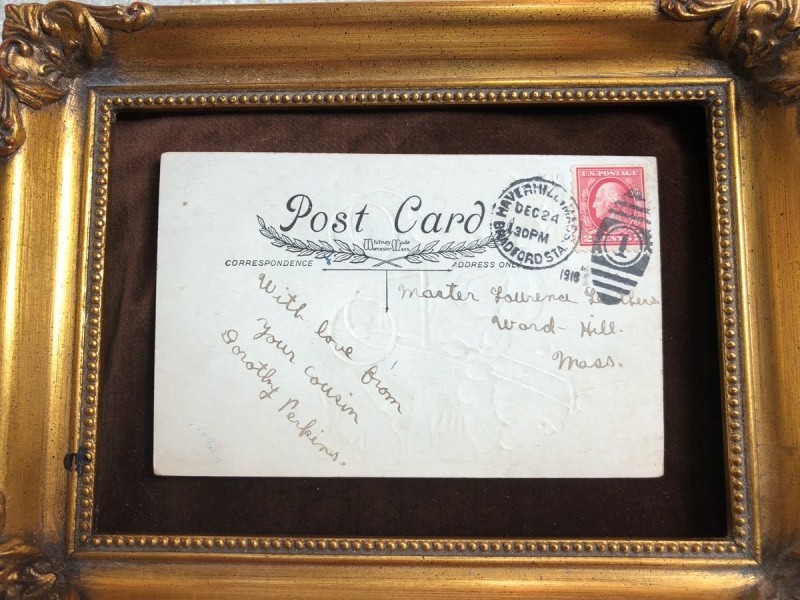 Post Card
Whitney Made
Worcester, Mass.
CORRESPONDENCE
ADDRESS ONLY
HAVERHILL, MASS.
DEC 24
130PM
BRADFORD STA.
1918
U.S. POSTAGE
2 CENTS 2
1
Master Lawrence
Ward-Hill.
Mass.
With love from
your cousin
Dorothy Perkins.